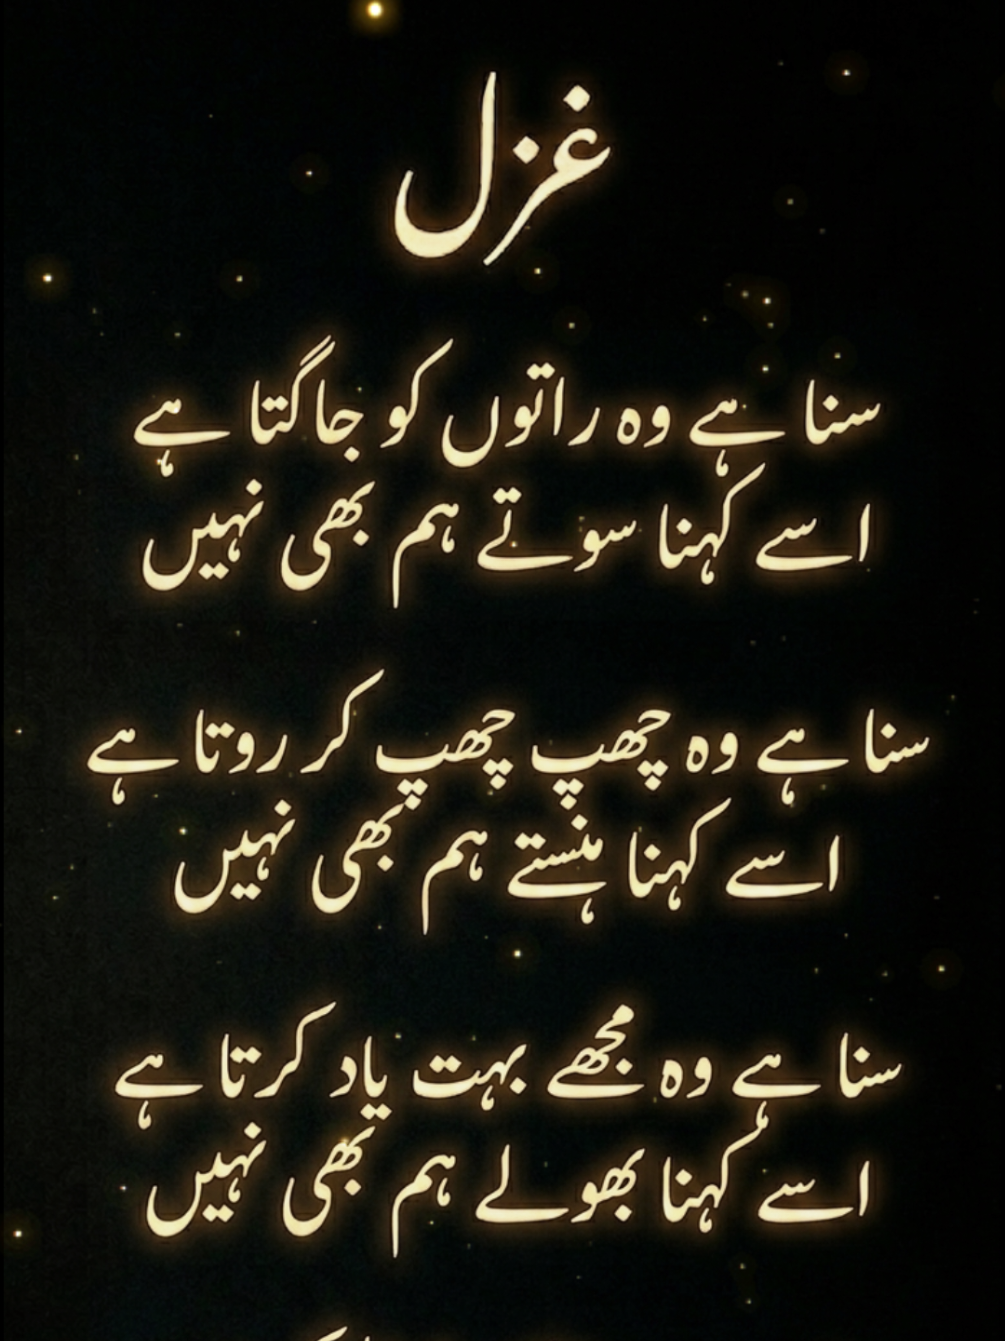 غزل
سنا ہے وہ راتوں کو جاگتا ہے
اسے کہنا سوتے ہم بھی نہیں
سنا ہے وہ چھپ چھپ کر روتا ہے
اسے کہنا ہنستے ہم بھی نہیں
سنا ہے وہ مجھے بہت یاد کرتا ہے
اسے کہنا بھولے ہم بھی نہیں